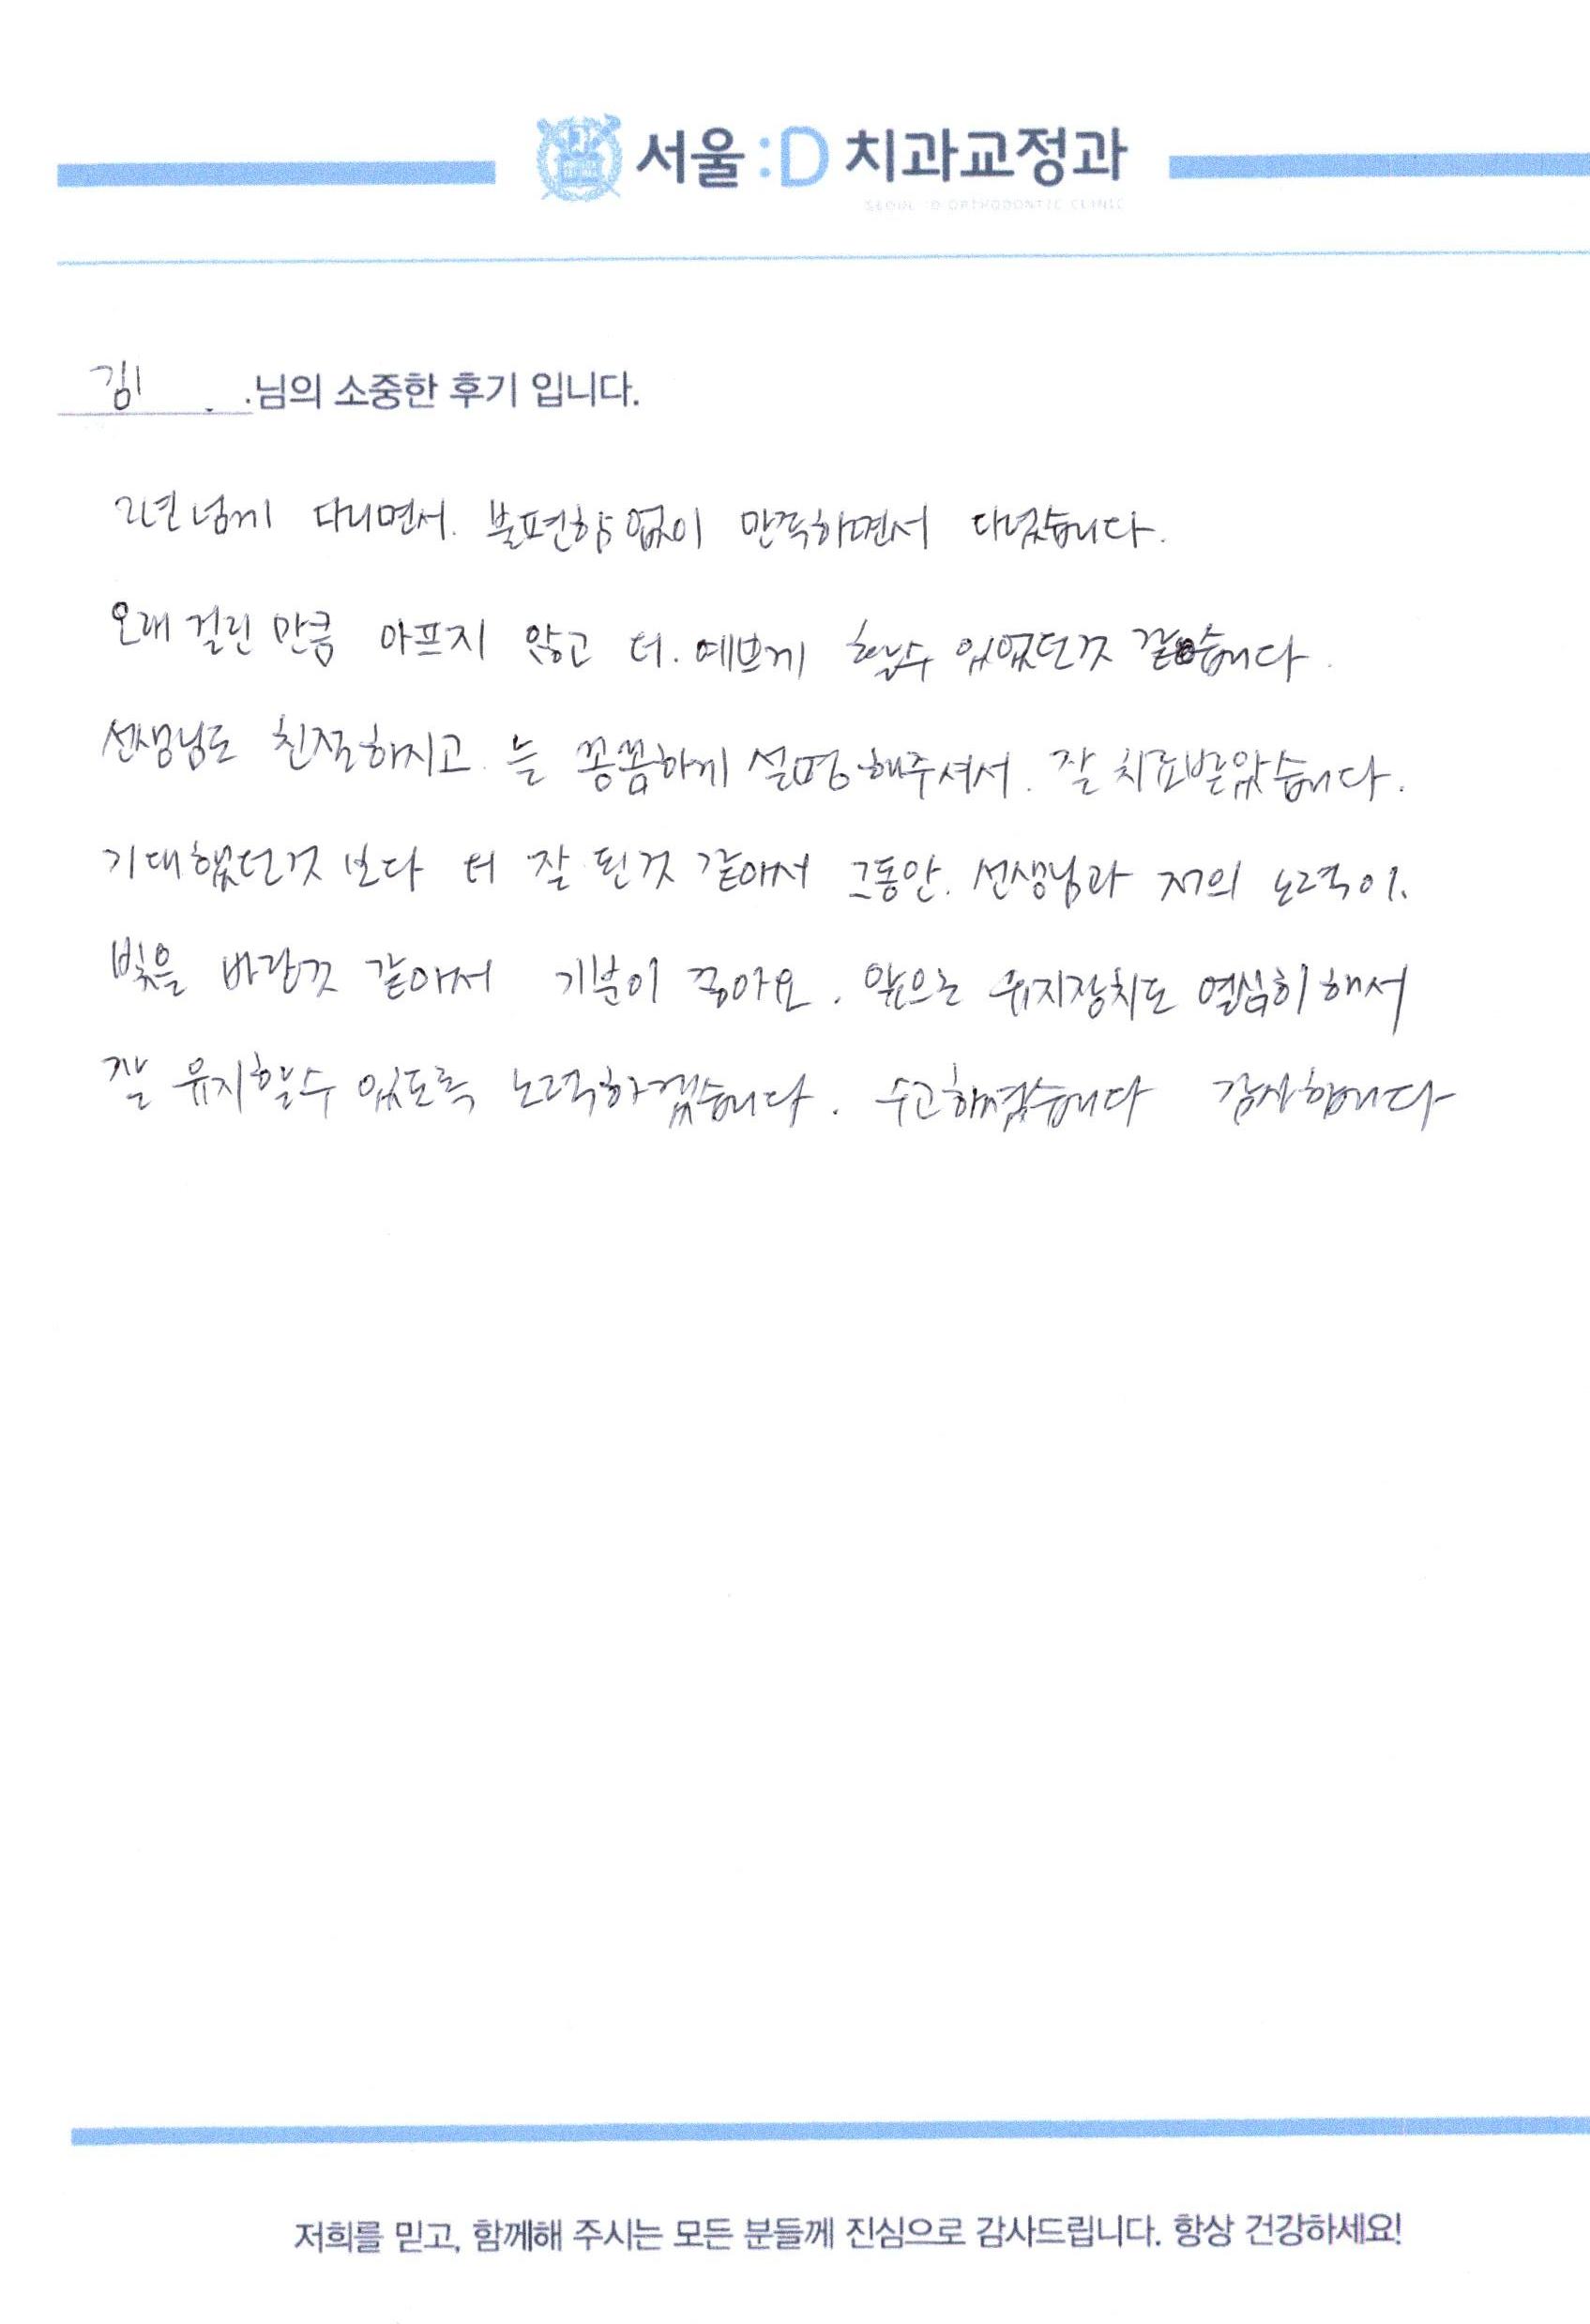 서울:D 치과교정과
SEOUL :D ORTHODONTIC CLINIC
김 님의 소중한 후기 입니다.
2년 넘게 다니면서. 불편함 없이 만족하면서 다녔습니다.
오래 걸린 만큼 아프지 않고 더. 예쁘게 할수 있었던것 같습니다.
선생님도 친절하시고. 늘 꼼꼼하게 설명해주셔서. 잘 치료받았습니다.
기대했던것 보다 더 잘 된것 같아서 그동안. 선생님과 저의 노력이.
빛을 바란것 같아서 기분이 좋아요. 앞으는 유지장치도 열심히 해서
잘 유지할수 있도록 노력하겠습니다. 수고하셨습니다 감사합니다
저희를 믿고, 함께해 주시는 모든 분들께 진심으로 감사드립니다. 항상 건강하세요!